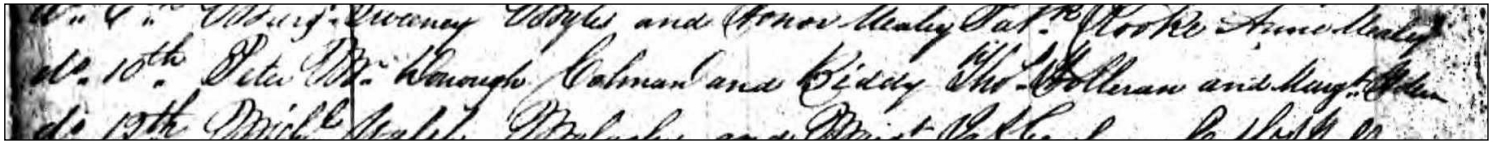 do. 6th Margt Sweeney Myles and Honor Mealey Patk. Rooke Anne Mealey
do. 10th. Peter Mc. Donough Colman and Biddy Thos. Holleran and Margt.
do 12th Michl. Walsh Malachy and Margt